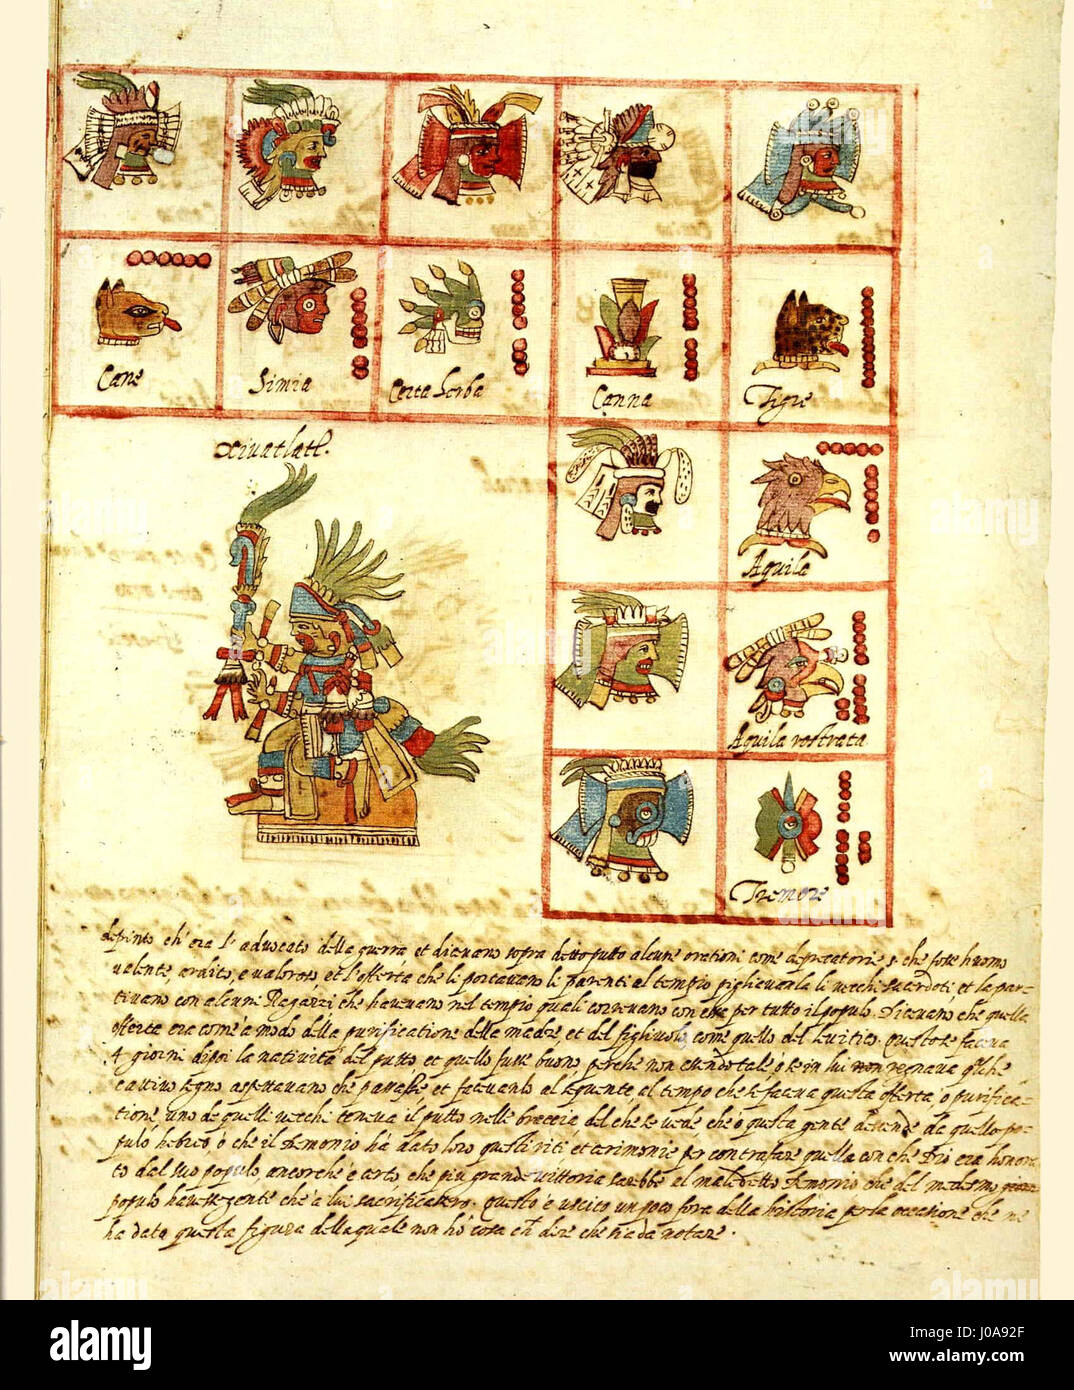 Cane
Simia
Certa herba
Canna
Tigre
Xiuatlatl.
Aquila
Aquila rostrata
Tremore
depinto ch'era l'aduocato della guerra et diceuano sopra detto putto alcune orationi come deprecatorie che fosse huomo
ualente ardito, e ualoroso, et l'offerta che li portauano li parenti al tempio pigliauanla li uechi sacerdoti, et la par-
tiuano con alcuni Ragazzi che haueuano nel tempio quali correuano con essa per tutto il popolo. Diceuano che quella
offerta era come a modo della purificatione della madre, et del figliuolo, come quello del leuitico. Questo se faceua
4 giorni dopo la natiuità del putto, et quello fusse buono, perche non essendo tale o se in lui non regnaua qualche
cattiuo segno, aspettauano che passasse, et faceuanlo al sequente, al tempo che se faceua questa offerta, o purifica-
tione, uno de quelli uecchi teneua il putto nelle braccia del che se uede che o questa gente descende da quello po-
pulo hebreo, o che il demonio ha dato loro questi riti et cerimonie per contrafare quella con che Dio era honora-
to dal suo populo, ancorche è certo, che piu grande uittoria sarebbe al maledetto demonio che del medesmo
populo hauesse gente che a lui sacrificassero. questo è uscito un poco fora della historia per la occasione che me
ha dato questa figura della quale non ho cosa ch dire che sia da notare.
alamy
Image ID: J0A92F
www.alamy.com